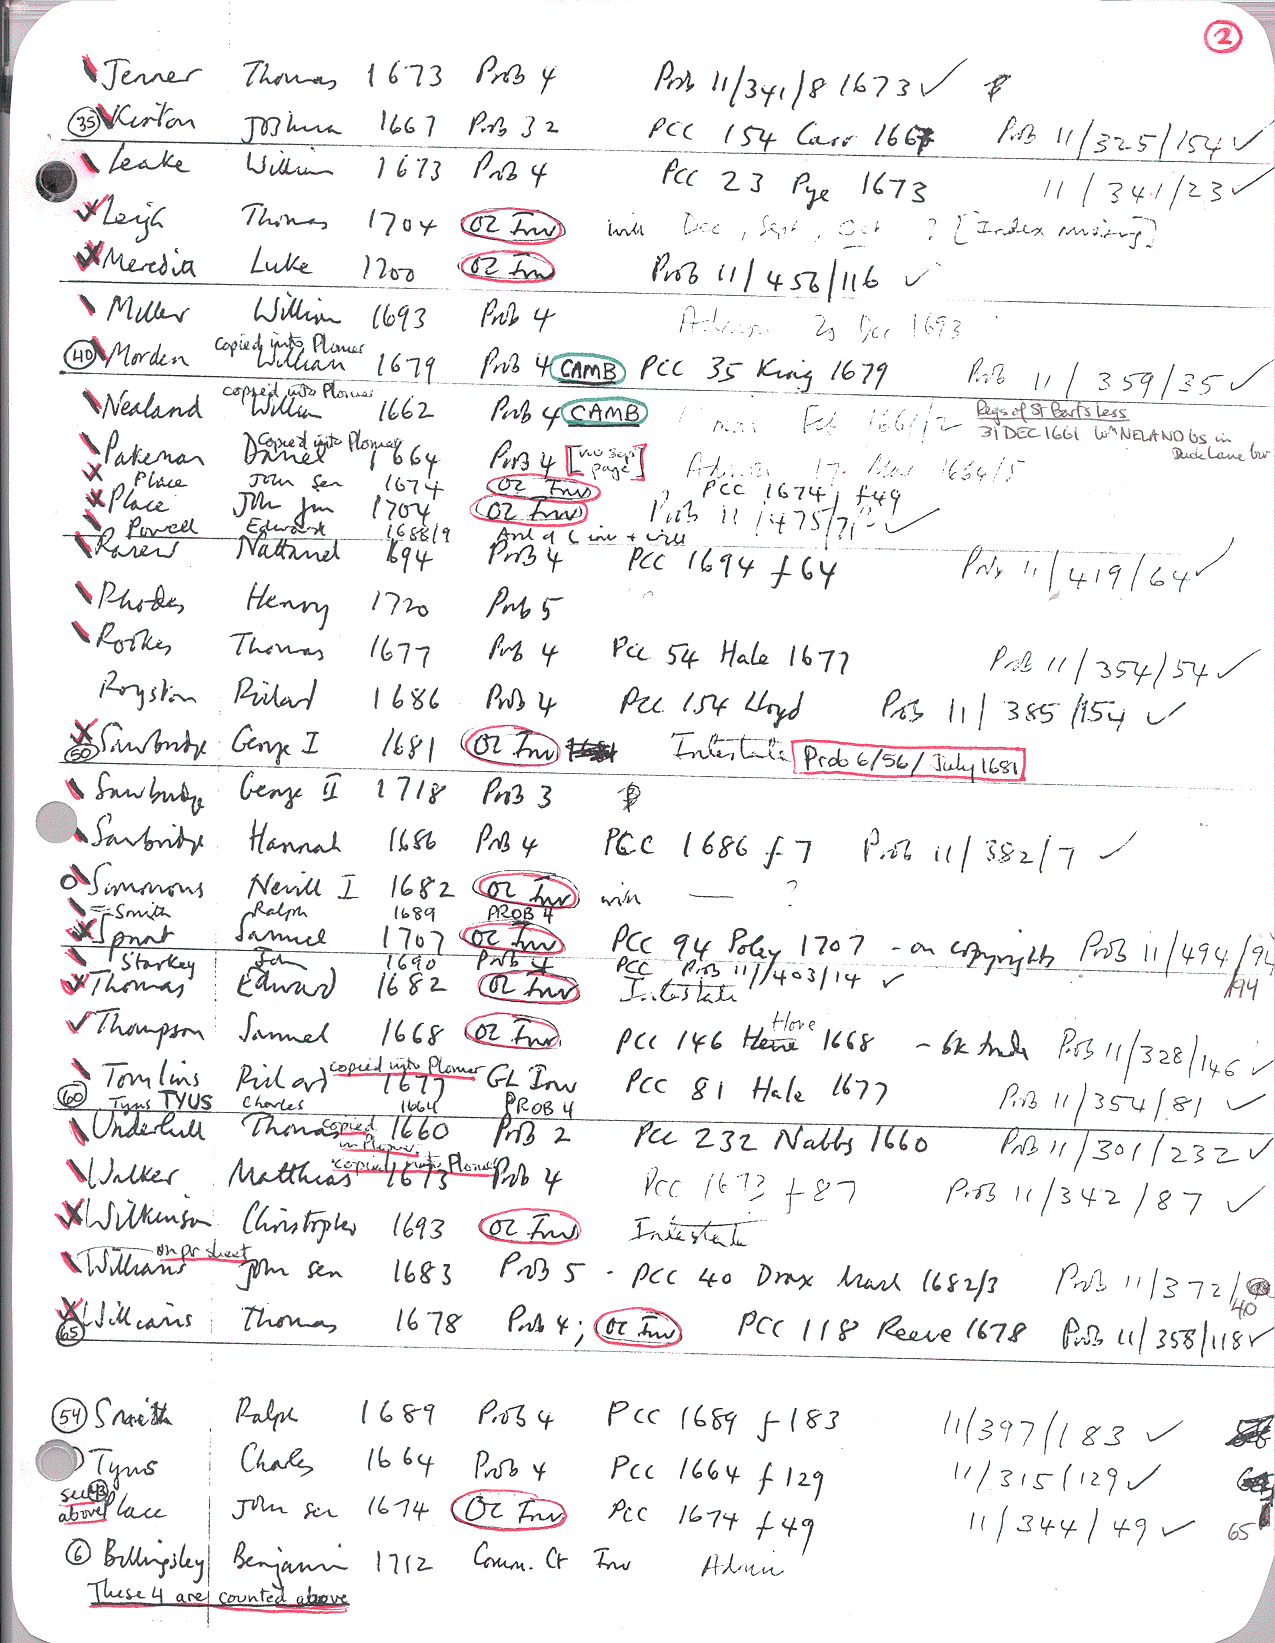 2
Jenner Thomas 1673 Prob 4 Prob 11/341/8 1673 ✓
35 Kirton Joshua 1667 Prob 32 PCC 154 Carr 1667 Prob 11/325/154 ✓
Leake William 1673 Prob 4 PCC 23 Pye 1673 11/341/23 ✓
Leigh Thomas 1704 OC Inv will Dec, Sept, Oct ? [Index missing]
Meredith Luke 1700 OC Inv Prob 11/456/116 ✓
Miller William 1693 Prob 4 Admon 23 Dec 1693
copied into Plomer
40 Morden William 1679 Prob 4 CAMB PCC 35 King 1679 Prob 11/359/35 ✓
copied into Plomer
Nealand William 1662 Prob 4 CAMB Feb 1661/2 Regs of St Barts Less
31 DEC 1661 Wm NELAND bs in
Duck Lane bur
copied into Plomer
Pakeman Daniel 1664 Prob 4 [no sep page] Admon 17 Mar 1664/5
Place John Sen 1674 OC Inv PCC 1674 f 49
Place John Jun 1704 OC Inv Prob 11/475/71 ✓
Powell Edward 1688/9 And of C inv + will
Ranew Nathaniel 1694 Prob 4 PCC 1694 f 64 Prob 11/419/64 ✓
Rhodes Henry 1720 Prob 5
Rookes Thomas 1677 Prob 4 PCC 54 Hale 1677 Prob 11/354/54 ✓
Royston Richard 1686 Prob 4 PCC 154 Lloyd Prob 11/385/154 ✓
50 Sawbridge George I 1681 OC Inv Intestate Prob 6/56/July 1681
Sawbridge George II 1718 Prob 3
Sawbridge Hannah 1686 Prob 4 PCC 1686 f 7 Prob 11/382/7 ✓
Simmons Nevill I 1682 OC Inv will — ?
Smith Ralph 1689 PROB 4
Sprat Samuel 1707 OC Inv PCC 94 Poley 1707 - on copyrights Prob 11/494/94
/94
Starkey John 1690 Prob 4 PCC Prob 11/403/14 ✓
Thomas Edward 1682 OC Inv Intestate
Thompson Samuel 1668 OC Inv PCC 146 Hene Hare 1668 - bk trade Prob 11/328/146 ✓
copied into Plomer
Tomlins Richard 1677 GL Inv PCC 81 Hale 1677 Prob 11/354/81 ✓
60 Tyus TYUS Charles 1664 PROB 4
Underhill Thomas copied in Plomer 1660 Prob 2 PCC 232 Nabbs 1660 Prob 11/301/232 ✓
copied into Plomer
Walker Matthias 1673 Prob 4 PCC 1673 f 87 Prob 11/342/87 ✓
Wilkinson Christopher 1693 OC Inv Intestate
on pr sheet
Williams John Sen 1683 Prob 5 - PCC 40 Drax March 1682/3 Prob 11/372/
40
65 Williams Thomas 1678 Prob 4; OC Inv PCC 118 Reeve 1678 Prob 11/358/118 ✓
54 Smith Ralph 1689 Prob 4 PCC 1689 f 183 11/397/183 ✓
Tyus Charles 1664 Prob 4 PCC 1664 f 129 11/315/129 ✓
see 43 above Place John Sen 1674 OC Inv PCC 1674 f 49 11/344/49 ✓ 65
6 Billingsley Benjamin 1712 Comm. Ct Inv Admin
These 4 are counted above